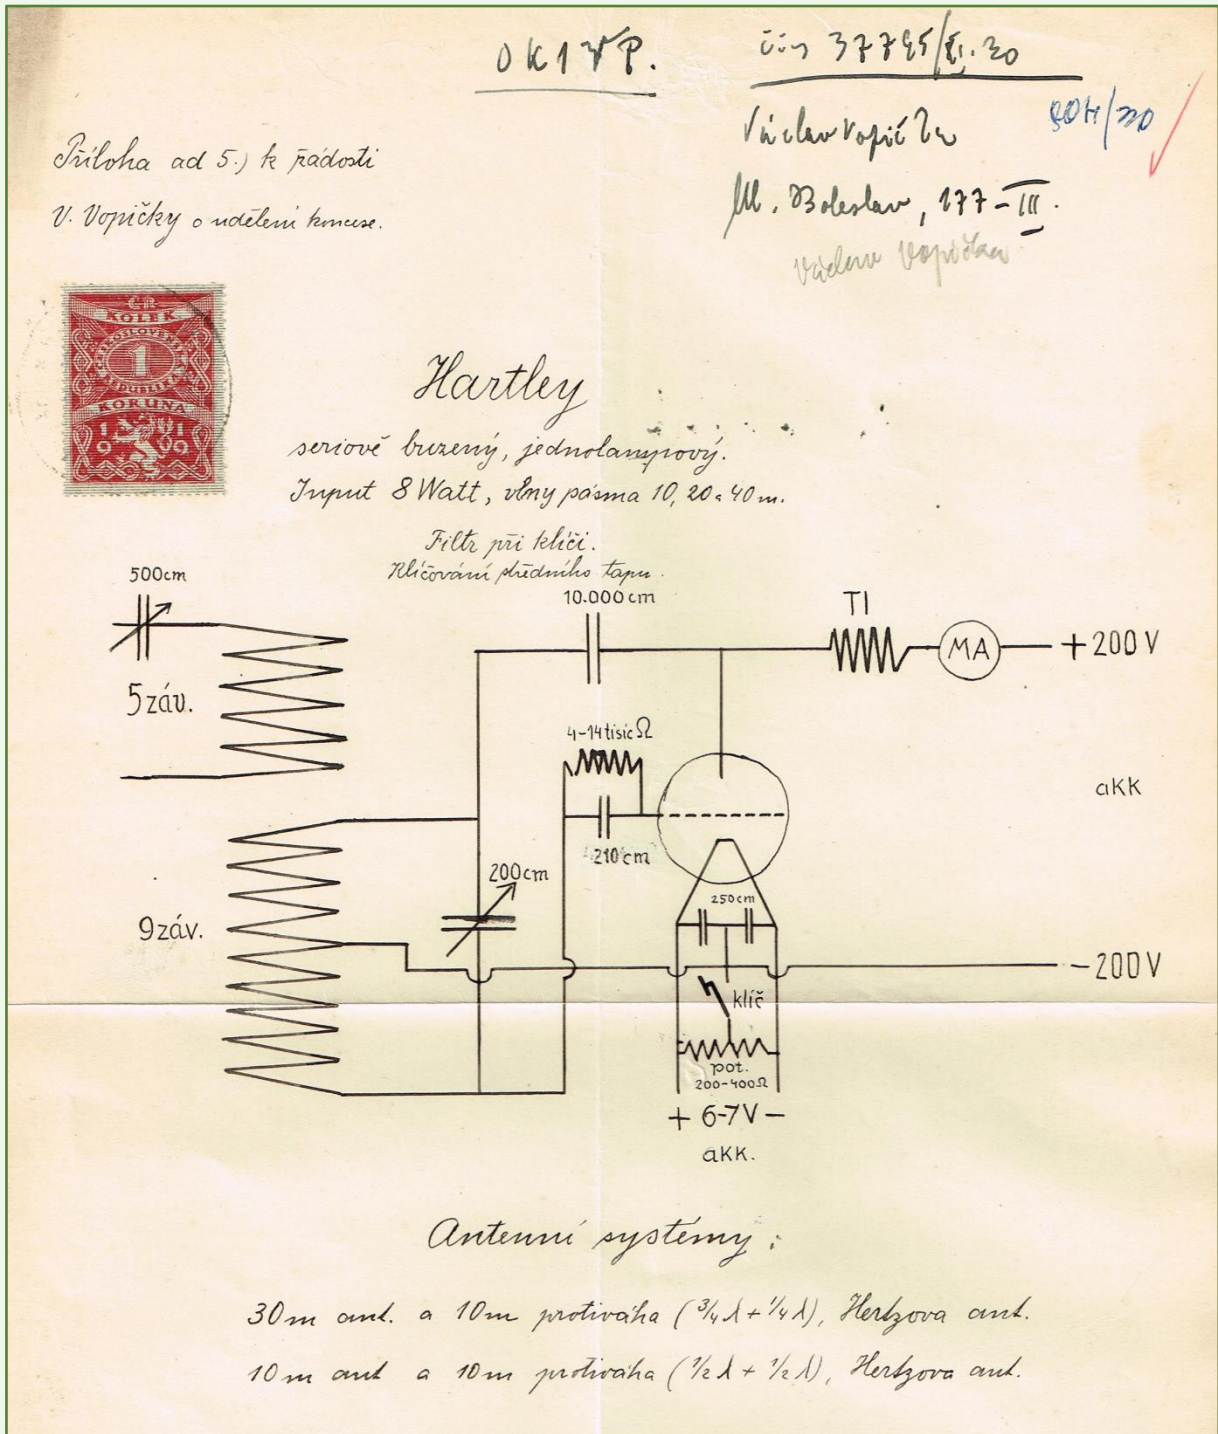 OK1VP.
37795/XI.30
Václav Vopička
Ml. Boleslav, 177-III.
Václav Vopička
Příloha ad 5.) k žádosti
V. Vopičky o udělení koncese.
ČR
KOLEK
1
KORUNA
1919
Hartley
seriově buzený, jednolampový.
Input 8 Watt, vlny pásma 10, 20 a 40 m.
Filtr při klíči.
Klíčování středního tapu.
500cm
10.000cm
Tl
MA
+200V
5záv.
4-14tisíc Ω
akk
210cm
200cm
250cm
9záv.
-200V
klíč
pot.
200-400Ω
+ 6-7V -
akk.
Antenní systémy:
30m ant. a 10m protiváha (3/4 λ + 1/4 λ), Hertzova ant.
10m ant a 10m protiváha (1/2 λ + 1/2 λ), Hertzova ant.